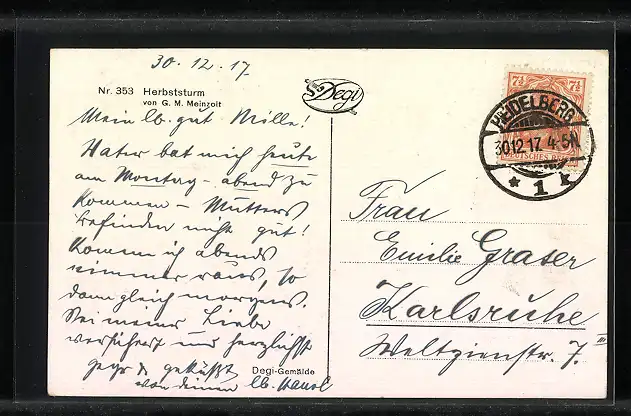 30.12.17.
Nr. 353 Herbststurm
von G. M. Meinzolt
Degi
7½ 7½
DEUTSCHES REICH
HEIDELBERG
30.12.17. 4-5N
* 1 k
Mein lb. gut Mille!
Vater bat mich heute
am Montag - abend zu
kommen - Mutters
befinden nicht gut!
Komm ich abends
nimmer raus, so
dann gleich morgens.
Sei meiner Liebe
versichert und herzlichst
gegr. & geküßt
von deinem lb.
Degi-Gemälde
Frau
Emilie Graser
Karlsruhe
Weltzienstr. 7. III